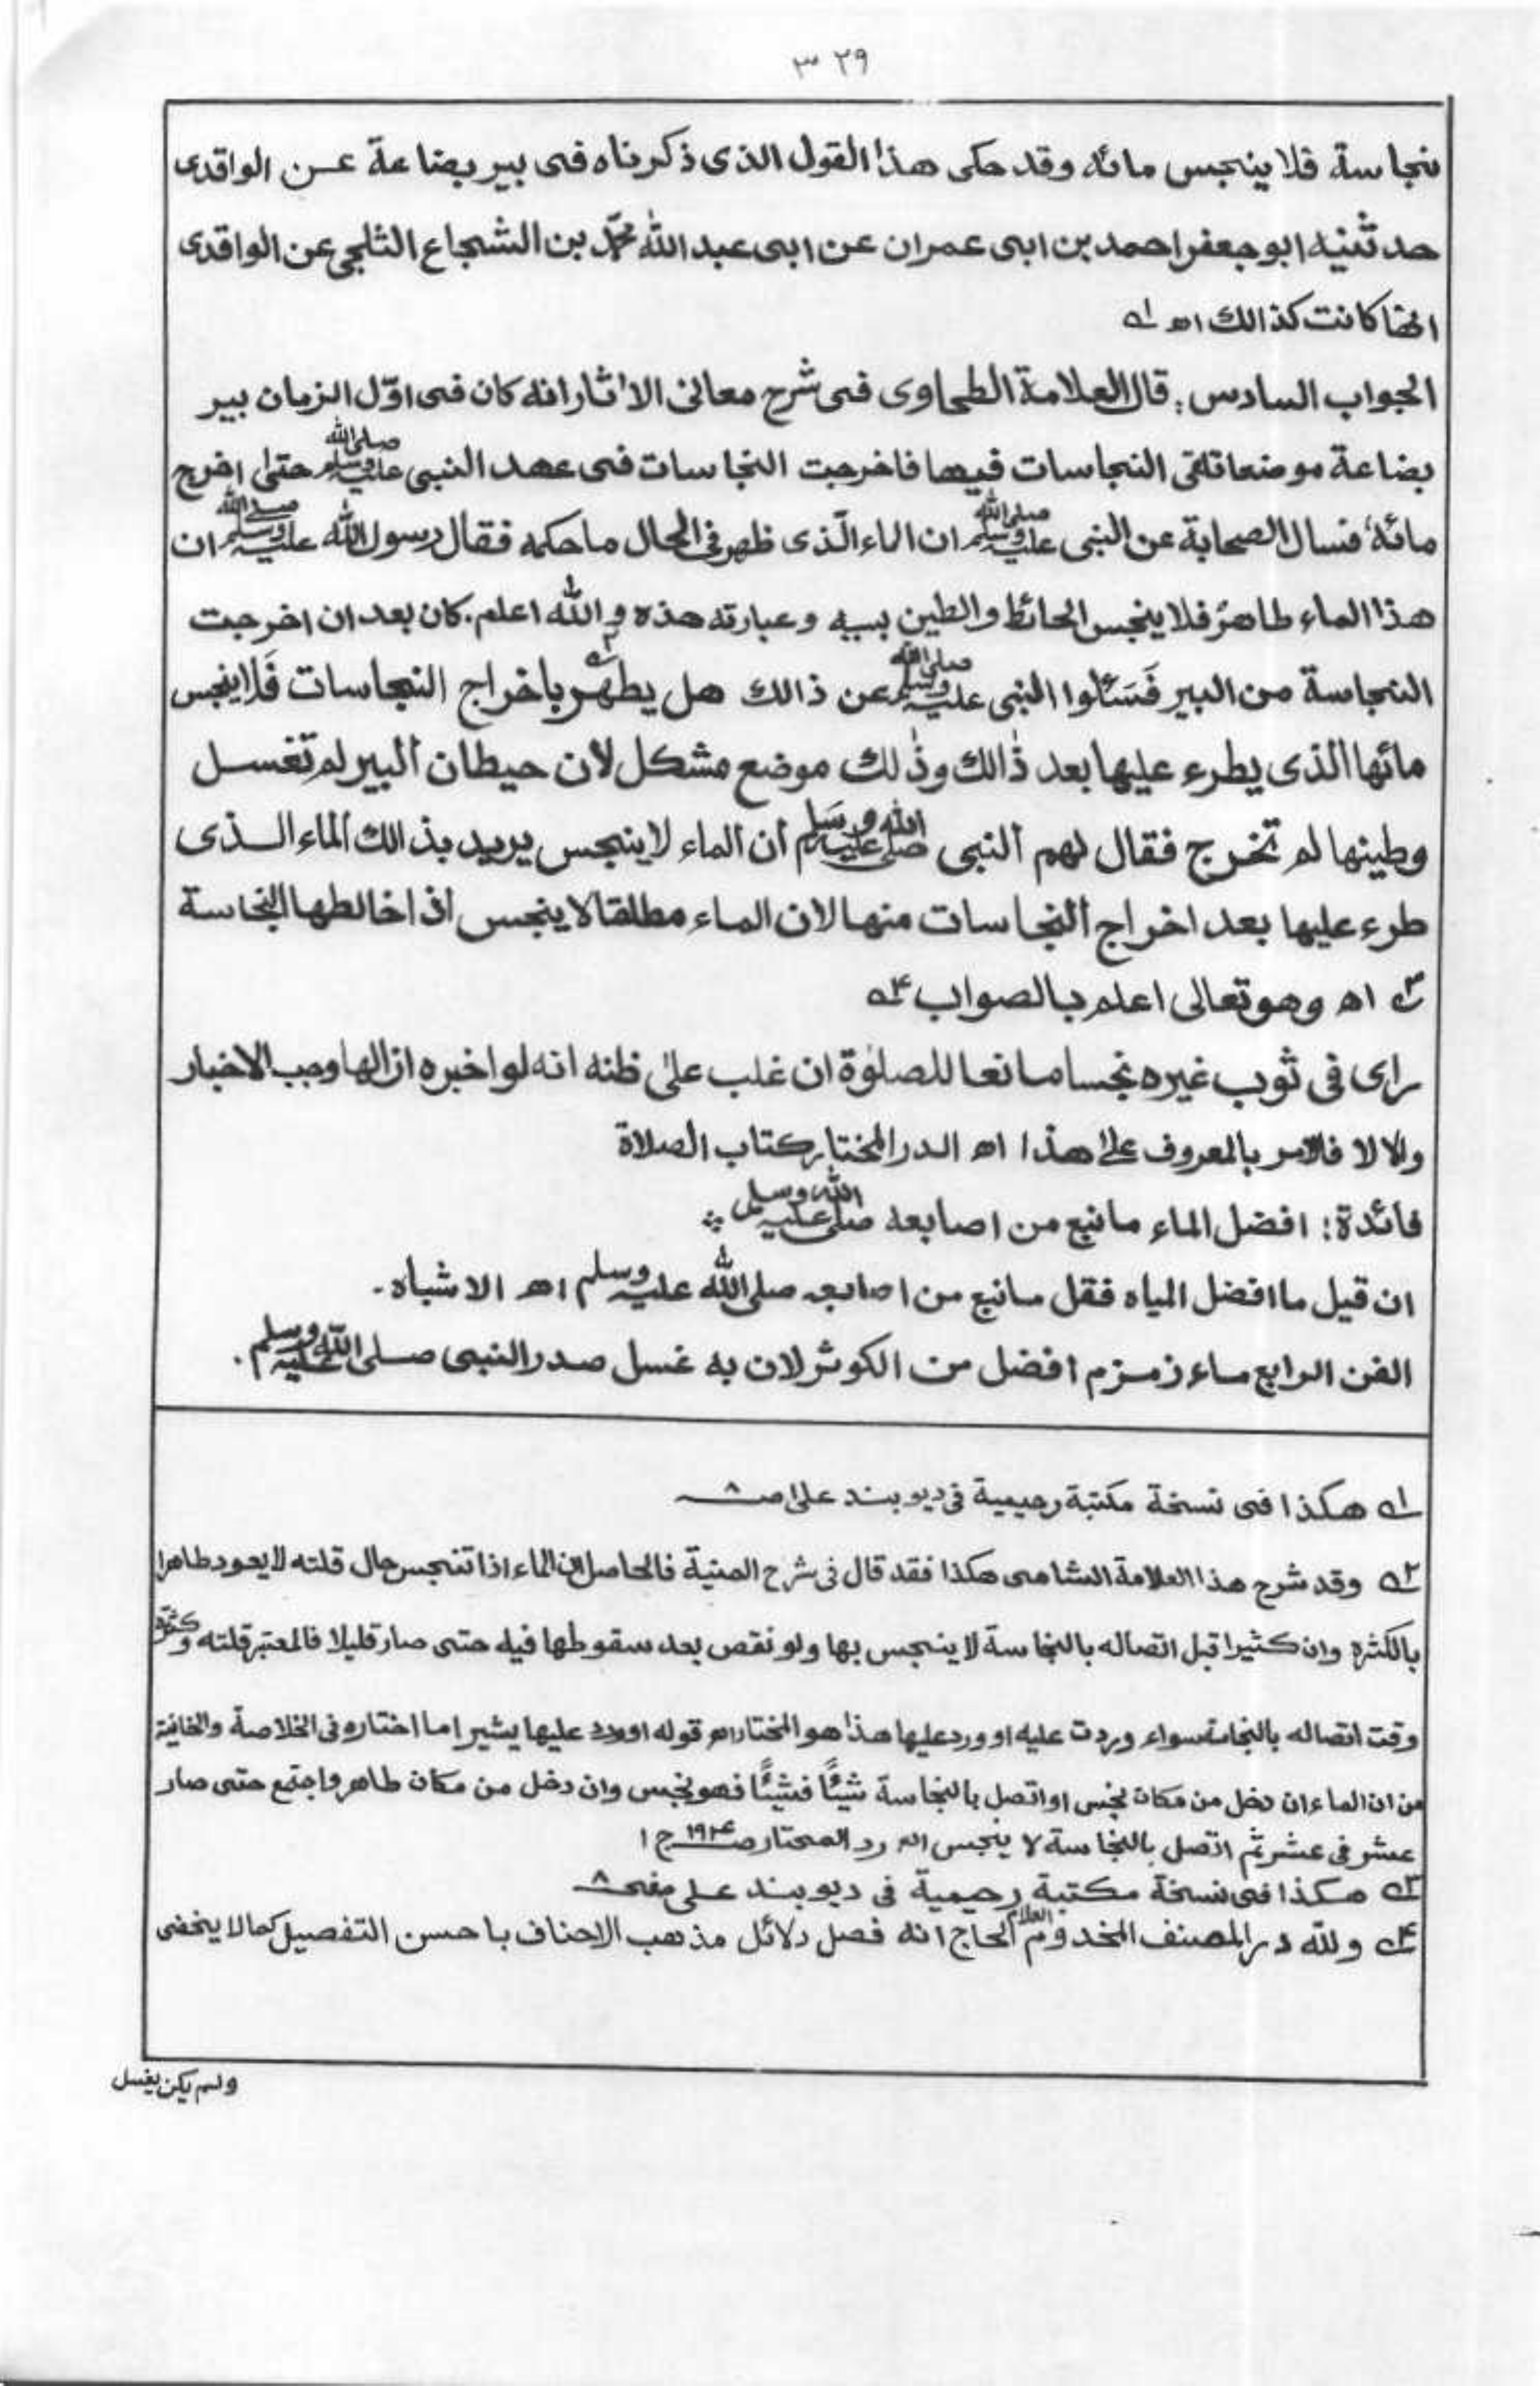 ٣٢٩
نجاسة فلا ينجس مائه وقد حكى هذا القول الذى ذكرناه فى بير بضاعة عن الواقدى
حدثنيه ابو جعفر احمد بن ابى عمران عن ابى عبد الله محمّد بن الشجاع الثلجى عن الواقدى
انها كانت كذالك اھ ١ـه
الجواب السادس: قال العلامة الطحاوى فى شرح معانى الاثار انه كان فى اوّل الزمان بير
بضاعة موضعا تلقى النجاسات فيها فاخرجت النجاسات فى عهد النبى صلى الله عليه وسلم حتى اخرج
مائه، فسال الصحابة عن النبى صلى الله عليه وسلم ان الماء الّذى ظهر فى الحال ما حكمه فقال رسول الله صلى الله عليه وسلم ان
هذا الماء طاهر فلا ينجس الحائط والطين بسببه وعبارته هذه والله اعلم. كان بعد ان اخرجت
النجاسة من البير فَسَئلوا النبى صلى الله عليه وسلم عن ذالك هل يطهر ٢ـه باخراج النجاسات فَلا ينجس
مائها الذى يطرء عليها بعد ذٰالك وذٰلك موضع مشكل لأن حيطان البير لم تغسل
وطينها لم تخرج فقال لهم النبى صلى الله عليه وسلم أن الماء لا ينجس يريد بذالك الماء الذى
طرء عليها بعد اخراج النجاسات منها لا ان الماء مطلقا لا ينجس اذا خالطها النجاسة
٣ـه اھ وهو تعالى اعلم بالصواب ٤ـه
راى فى ثوب غيره نجسا مانعا للصلوٰة ان غلب علىٰ ظنه انه لو اخبره ازالها وجب الاخبار
والا لا فالامر بالمعروف علىٰ هذا اھ الدر المختار كتاب الصلاة
فائدة: افضل الماء ما نبع من اصابعه صلى الله عليه وسلم
ان قيل ما افضل المياه فقل ما نبع من اصابعه صلى الله عليه وسلم اھ الاشباه۔
الفن الرابع ماء زمزم افضل من الكوثر لان به غسل صدر النبى صلى الله عليه وسلم.
١ـه هكذا فى نسخة مكتبة رحيمية فى ديوبند علىٰ صـ٨
٢ـه وقد شرح هذا العلامة الشامى هكذا فقد قال فى شرح المنية فالحاصل ان الماء اذا تنجس حال قلته لا يعود طاهرا
بالكثرة وان كثيرا قبل اتصاله بالنجاسة لا ينجس بها ولو نقص بعد سقوطها فيه حتى صار قليلا فالمعتبر قلته وكثرته
وقت اتصاله بالنجاسة سواء وردت عليه او ورد عليها هذا هو المختار اھ قوله او ورد عليها يشير اما اختاره فى الخلاصة والخانية
من ان الماء ان دخل من مكان نجس او اتصل بالنجاسة شيئًا فشيئًا فهو نجس وان دخل من مكان طاهر واجتمع حتى صار
عشر فى عشر ثم اتصل بالنجاسة لا ينجس اھ رد المحتار صـ١٩٤ ج ١
٣ـه هكذا فى نسخة مكتبة رحيمية فى ديوبند على صفحـ٨
٤ـه ولله در المصنف المخدوم العلام الحاج انه فصل دلائل مذهب الاحناف باحسن التفصيل كما لا يخفى
ولم يكن يغسل